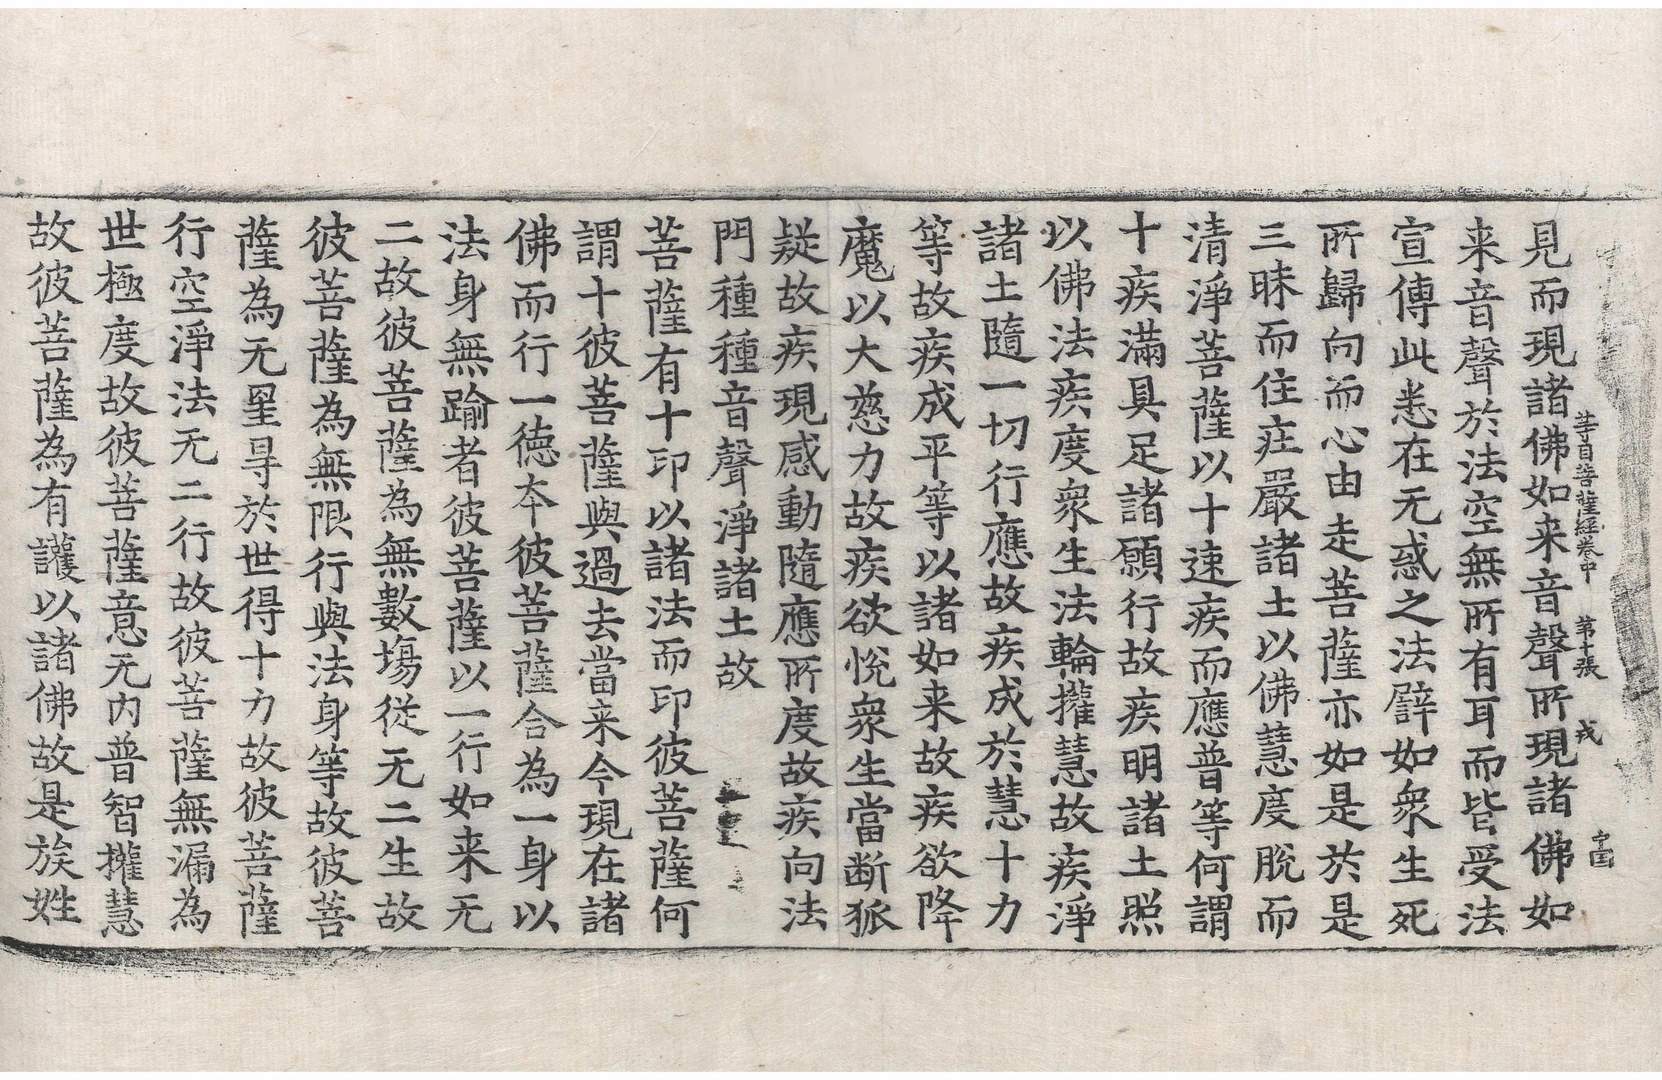 等目菩薩經卷中 第十張 戎
見而現諸佛如来音聲所現諸佛如
来音聲於法空無所有耳而皆受法
宣傳此悉在无惑之法譬如衆生死
所歸向而心由走菩薩亦如是於是
三昧而住庄嚴諸土以佛慧度脫而
清淨菩薩以十速疾而應普等何謂
十疾滿具足諸願行故疾明諸土照
以佛法疾度衆生法輪攉慧故疾淨
諸土隨一切行應故疾成於慧十力
等故疾成平等以諸如来故疾欲降
魔以大慈力故疾欲悅衆生當断狐
疑故疾現感動隨應所度故疾向法
門種種音聲淨諸土故
菩薩有十印以諸法而印彼菩薩何
謂十彼菩薩與過去當来今現在諸
佛而行一德夲彼菩薩合為一身以
法身無踰者彼菩薩以一行如来无
二故彼菩薩為無數塲從无二生故
彼菩薩為無限行與法身等故彼菩
薩為无罣㝵於世得十力故彼菩薩
行空淨法无二行故彼菩薩無漏為
世極度故彼菩薩意无内普智攉慧
故彼菩薩為有護以諸佛故是族姓